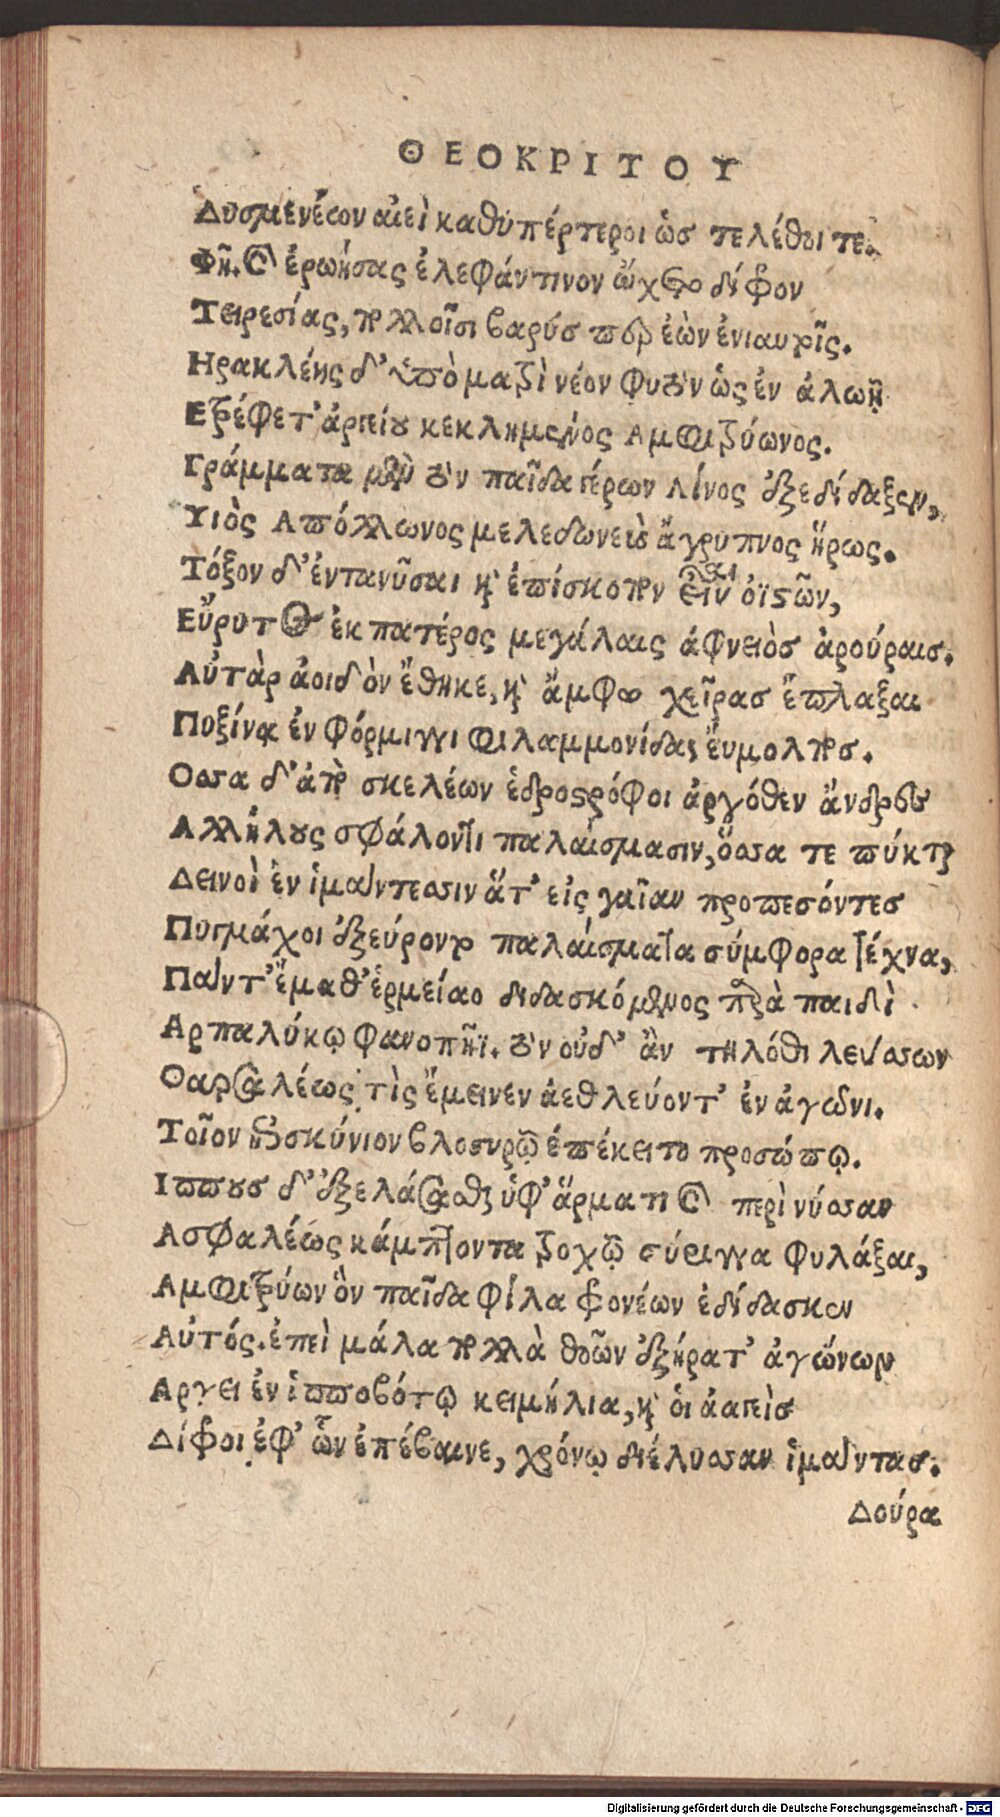 ΘΕΟΚΡΙΤΟΥ
Δυσμενέων αἰεὶ καθυπέρτεροι ὡς τελέθοιτε.
Φῆ. καὶ ἐρωήσας ἐλεφάντινον ᾤχετο δίφρον
Τειρεσίας, πολλοῖσι βαρύς περ ἐὼν ἐνιαυτοῖς.
Ηρακλέης δ' ὑπὸ μαρὶ νέον φυτὸν ὡς ἐν ἀλωῇ
Ετρέφετ' ἀργείου κεκλημένος Αμφιτρύωνος.
Γράμματα μὲν τὸν παῖδα γέρων Λίνος ἐξεδίδαξεν,
Υιὸς Απόλλωνος μελεδωνεὺς ἄγρυπνος ἥρως.
Τόξον δ' ἐντανῦσαι καὶ ἐπίσκοπον εἶναι ὀϊστῶν,
Εὔρυτος ἐκ πατέρος μεγάλαις ἀφνειὸς ἀρούραις.
Αὐτὰρ ἀοιδὸν ἔθηκε, καὶ ἄμφω χεῖρας ἔπλαξαι
Πυξίνᾳ ἐν φόρμιγγι Φιλαμμονίδας ἔυμολπος.
Οσσα δ' ἀπὸ σκελέων ἑδροστρόφοι ἀργόθεν ἄνδρες
Αλλήλους σφάλοντι παλαίσμασιν, ὅσσα τε πύκται
Δεινοὶ ἐν ἱμάντεσσιν ἅτ' εἰς γαῖαν προπεσόντες
Πυγμάχοι ἐξεύροντο παλαίσματα σύμφορα τέχνᾳ,
Πάντ' ἔμαθ' ἑρμείαο διδασκόμενος παρὰ παιδὶ
Αρπαλύκῳ φανοπῆϊ. τὸν οὐδ' ἂν τηλόθι λεύσσων
Θαρσαλέως τὶς ἔμεινεν ἀεθλεύοντ' ἐν ἀγῶνι.
Τοῖον ἐπισκύνιον βλοσυρῷ ἐπέκειτο προσώπῳ.
Ιππους δ' ἐξελάσασθαι ὑφ' ἅρματι καὶ περὶ νύσσαν
Ασφαλέως κάμπτοντα τροχῷ σύριγγα φυλάξαι,
Αμφιτρύων ὃν παῖδα φίλα φρονέων ἐδίδασκεν
Αὐτός. ἐπεὶ μάλα πολλὰ θοῶν ἐξήρατ' ἀγώνων
Αργει ἐν ἱπποβότῳ κειμήλια, καὶ οἱ ἀαγεὶς
Δίφροι ἐφ' ὧν ἐπέβαινε, χρόνῳ διέλυσαν ἱμάντας.
Δούρα
Digitalisierung gefördert durch die Deutsche Forschungsgemeinschaft - DFG